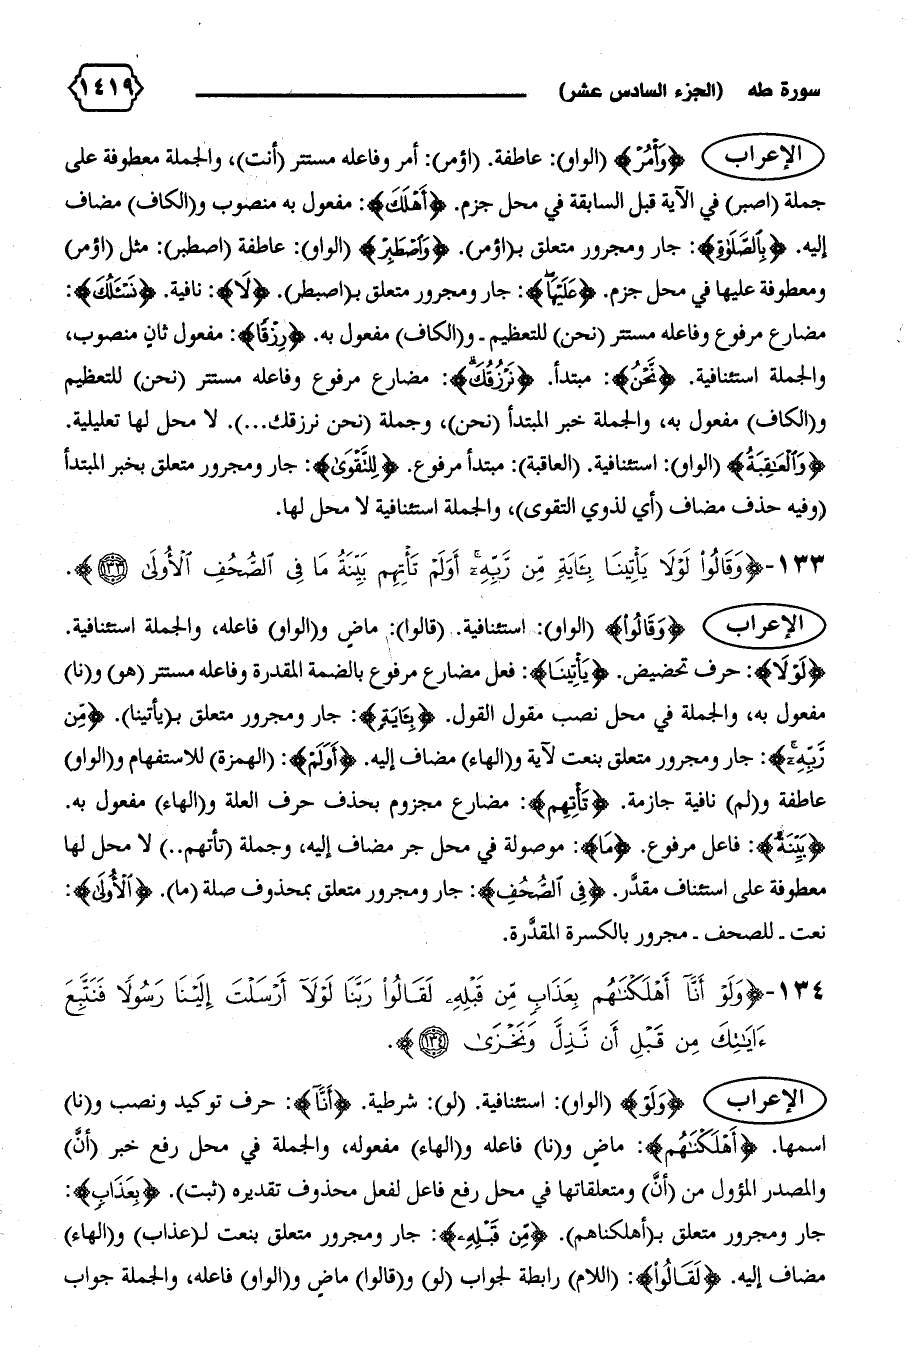 سورة طه (الجزء السادس عشر) ١٤١٩
الإعراب ﴿وَأْمُرْ﴾ (الواو): عاطفة. (اؤمر): أمر وفاعله مستتر (أنت)، والجملة معطوفة على
جملة (اصبر) في الآية قبل السابقة في محل جزم. ﴿أَهْلَكَ﴾: مفعول به منصوب و(الكاف) مضاف
إليه. ﴿بِالصَّلَوٰةِ﴾: جار ومجرور متعلق بـ(اؤمر). ﴿وَاصْطَبِرْ﴾ (الواو): عاطفة (اصطبر): مثل (اؤمر)
ومعطوفة عليها في محل جزم. ﴿عَلَيْهَا﴾: جار ومجرور متعلق بـ(اصبطر). ﴿لَا﴾: نافية. ﴿نَسْـَٔلُكَ﴾:
مضارع مرفوع وفاعله مستتر (نحن) للتعظيم ـ و(الكاف) مفعول به. ﴿رِزْقًا﴾: مفعول ثانٍ منصوب،
والجملة استئنافية. ﴿نَّحْنُ﴾: مبتدأ. ﴿نَرْزُقُكَ﴾: مضارع مرفوع وفاعله مستتر (نحن) للتعظيم
و(الكاف) مفعول به، والجملة خبر المبتدأ (نحن)، وجملة (نحن نرزقك...). لا محل لها تعليلية.
﴿وَالْعَٰقِبَةُ﴾ (الواو): استئنافية. (العاقبة): مبتدأ مرفوع. ﴿لِلتَّقْوَىٰ﴾: جار ومجرور متعلق بخبر المبتدأ
(وفيه حذف مضاف (أي لذوي التقوى)، والجملة استئنافية لا محل لها.
١٣٣-﴿وَقَالُوا۟ لَوْلَا يَأْتِينَا بِـَٔايَةٍ مِّن رَّبِّهِۦٓ ۚ أَوَلَمْ تَأْتِهِم بَيِّنَةُ مَا فِى ٱلصُّحُفِ ٱلْأُولَىٰ ١٣٣﴾.
الإعراب ﴿وَقَالُوا۟﴾ (الواو): استئنافية. (قالوا): ماضٍ و(الواو) فاعله، والجملة استئنافية.
﴿لَوْلَا﴾: حرف تحضيض. ﴿يَأْتِينَا﴾: فعل مضارع مرفوع بالضمة المقدرة وفاعله مستتر (هو) و(نا)
مفعول به، والجملة في محل نصب مقول القول. ﴿بِـَٔايَةٍ﴾: جار ومجرور متعلق بـ(يأتينا). ﴿مِّن
رَّبِّهِۦٓ ۚ﴾: جار ومجرور متعلق بنعت لآية و(الهاء) مضاف إليه. ﴿أَوَلَمْ﴾: (الهمزة) للاستفهام و(الواو)
عاطفة و(لم) نافية جازمة. ﴿تَأْتِهِم﴾: مضارع مجزوم بحذف حرف العلة و(الهاء) مفعول به.
﴿بَيِّنَةُ﴾: فاعل مرفوع. ﴿مَا﴾: موصولة في محل جر مضاف إليه، وجملة (تأتهم..) لا محل لها
معطوفة على استئناف مقدَّر. ﴿فِى ٱلصُّحُفِ﴾: جار ومجرور متعلق بمحذوف صلة (ما). ﴿ٱلْأُولَىٰ﴾:
نعت ـ للصحف ـ مجرور بالكسرة المقدَّرة.
١٣٤-﴿وَلَوْ أَنَّآ أَهْلَكْنَٰهُم بِعَذَابٍ مِّن قَبْلِهِۦ لَقَالُوا۟ رَبَّنَا لَوْلَآ أَرْسَلْتَ إِلَيْنَا رَسُولًا فَنَتَّبِعَ
ءَايَٰتِكَ مِن قَبْلِ أَن نَّذِلَّ وَنَخْزَىٰ ١٣٤﴾.
الإعراب ﴿وَلَوْ﴾ (الواو): استئنافية. (لو): شرطية. ﴿أَنَّآ﴾: حرف توكيد ونصب و(نا)
اسمها. ﴿أَهْلَكْنَٰهُم﴾: ماضٍ و(نا) فاعله و(الهاء) مفعوله، والجملة في محل رفع خبر (أنَّ)
والمصدر المؤول من (أنَّ) ومتعلقاتها في محل رفع فاعل لفعل محذوف تقديره (ثبت). ﴿بِعَذَابٍ﴾:
جار ومجرور متعلق بـ(أهلكناهم). ﴿مِّن قَبْلِهِۦ﴾: جار ومجرور متعلق بنعت لـ(عذاب) و(الهاء)
مضاف إليه. ﴿لَقَالُوا۟﴾: (اللام) رابطة لجواب (لو) و(قالوا) ماضٍ و(الواو) فاعله، والجملة جواب